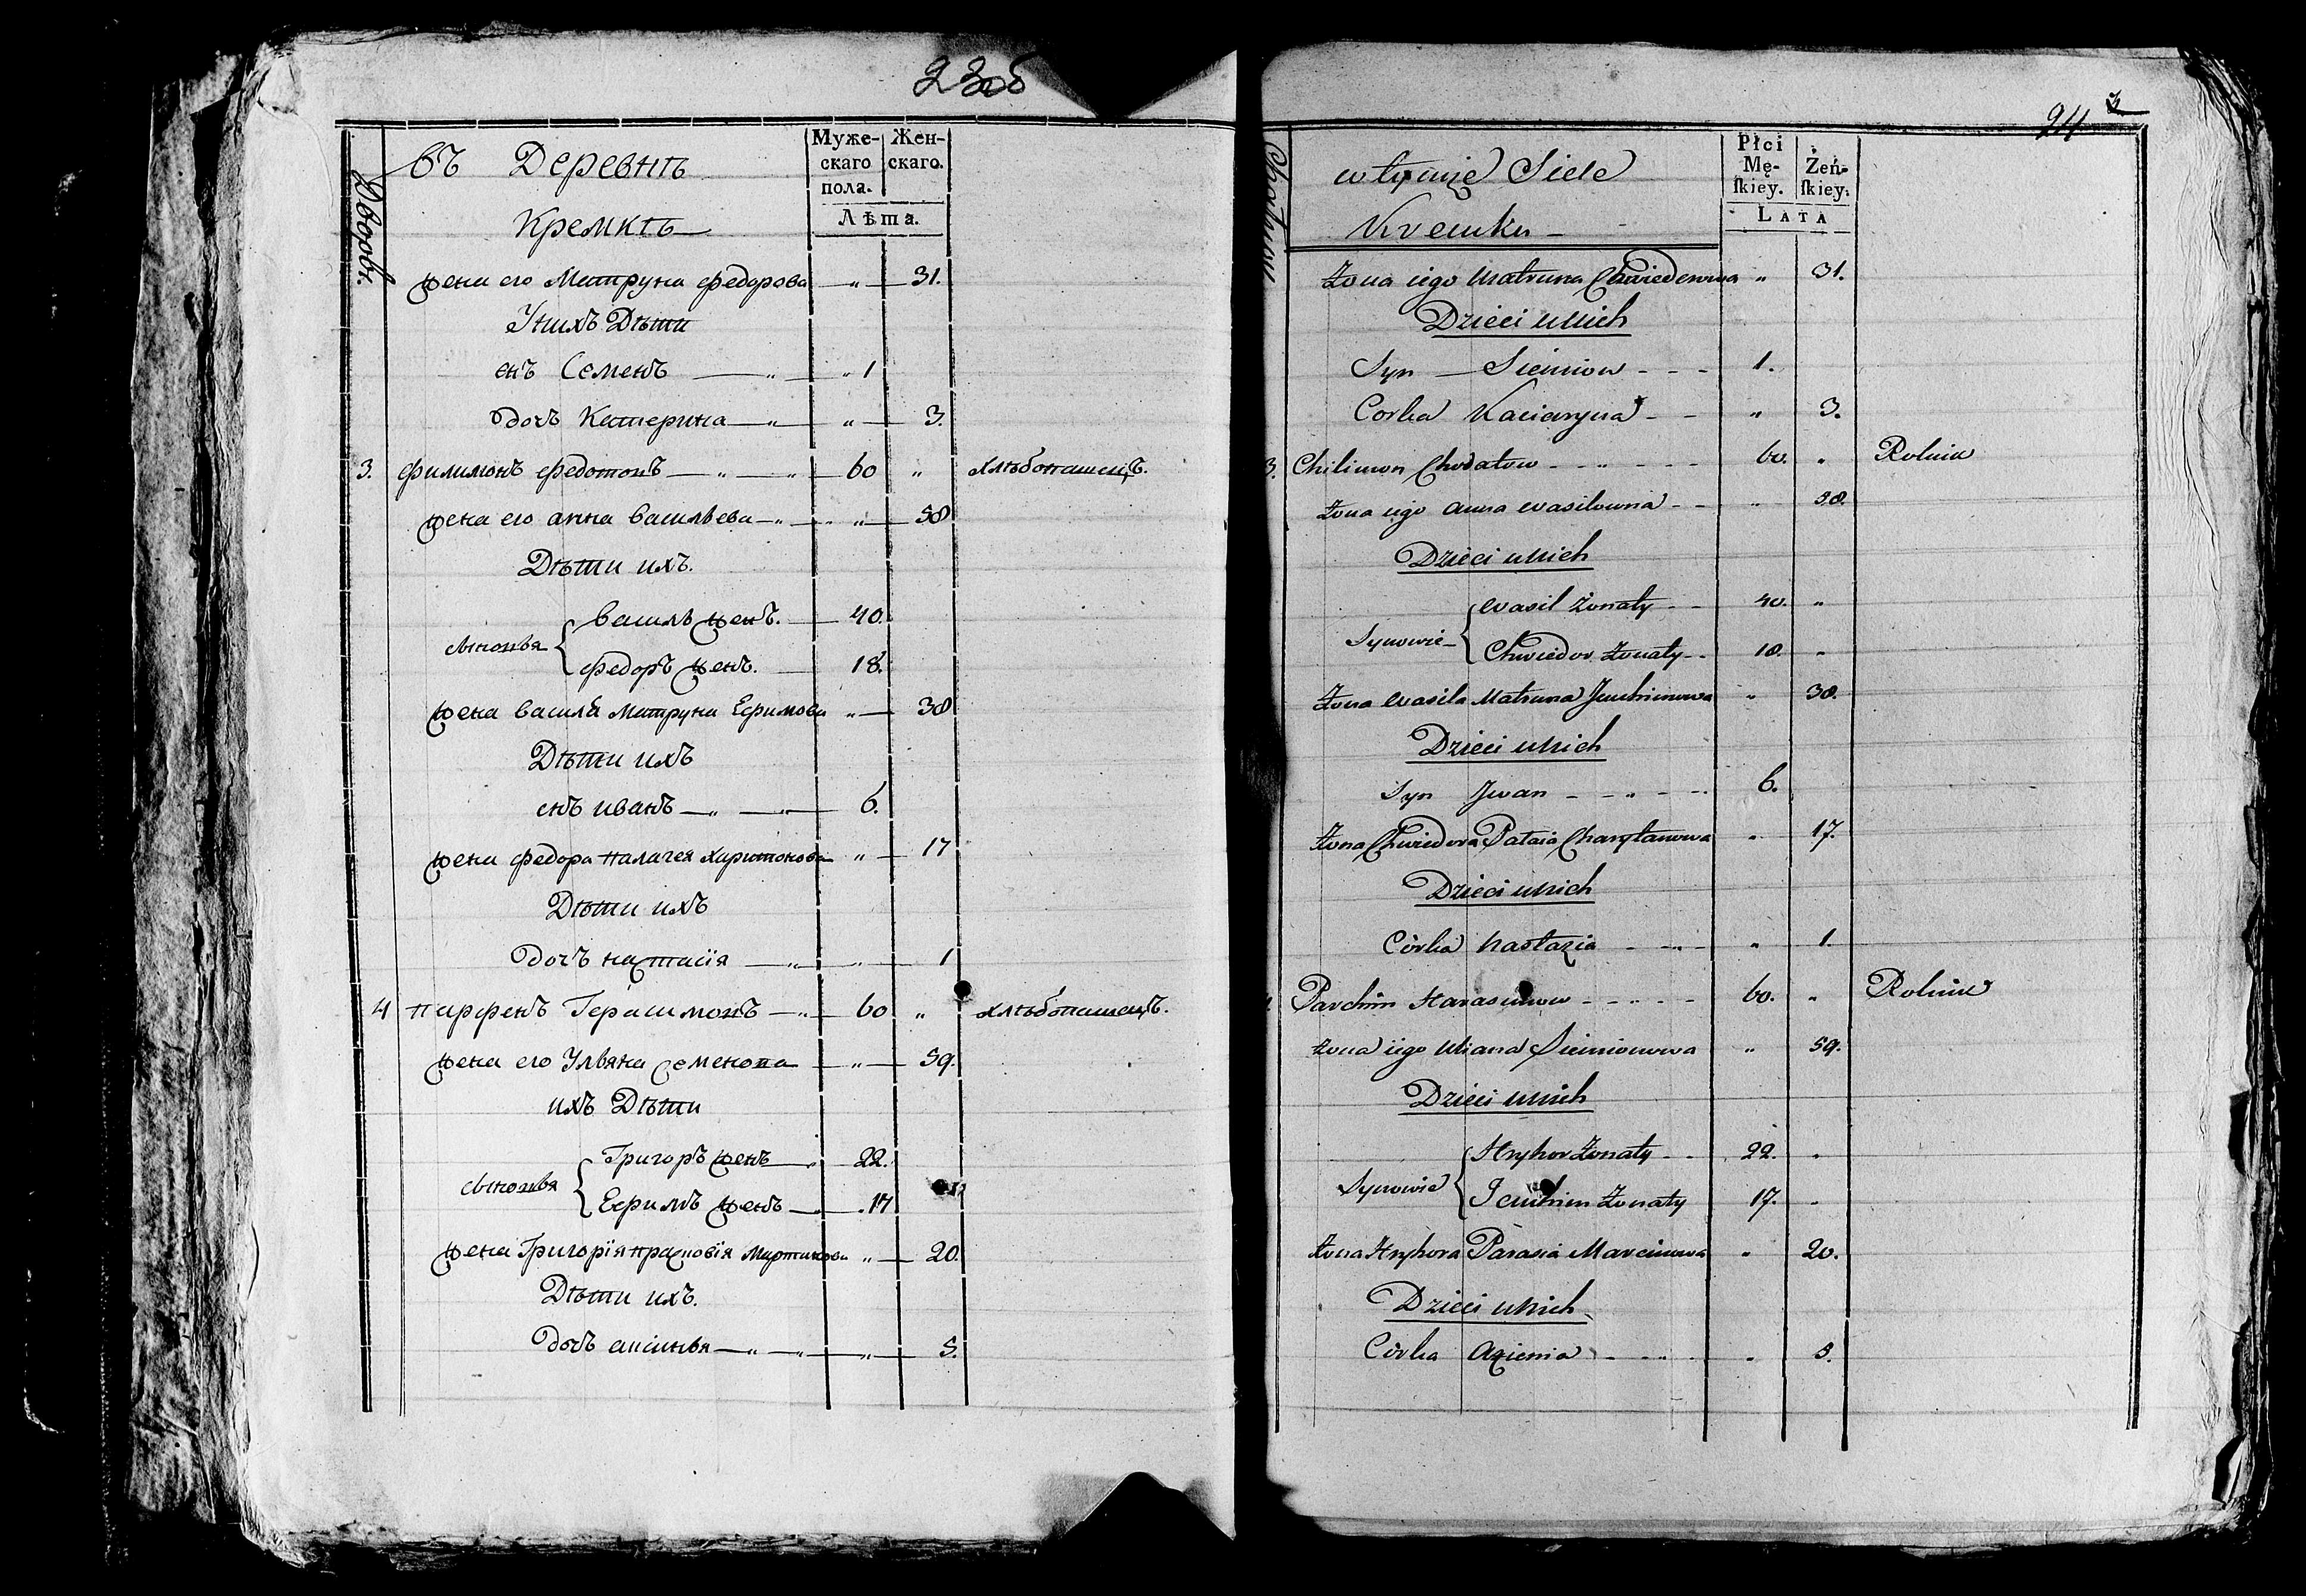 23об
Дворовъ.
въ Деревнѣ
Кремкѣ
Муже-
скаго
пола.
Жен-
скаго.
Лѣта.
жена его Матруна федорова „ 31.
У нихъ Дѣти
снъ Семенъ „ 1
дочь Катерина „ 3.
3. филимонъ федотовъ 60 „ хлѣбопашецъ.
жена его анна васильева „ 58
Дѣти ихъ.
василь жен. 40.
сыновья
федоръ жен. 18.
жена василя Матруна Ефимова „ 38
Дѣти ихъ
снъ иванъ 6.
жена федора палагея харитонова „ 17
Дѣти ихъ
дочь настасiя „ 1
4 парфенъ Герасимовъ 60 „ хлѣбопашецъ.
жена его Ульяна семенова „ 59.
ихъ Дѣти
Григоръ женъ 22.
сыновья
Ефимъ женъ 17
жена Григорiя прасковiя мартинова „ 20.
Дѣти ихъ.
дочь аксинья „ 5.
24
w teyże Siele
Kremku
Płci
Mę-
ſkiey.
Żeń-
ſkiey.
LATA
Żona iego Matruna Chwiedorowa „ 31.
Dzieci u nich
Syn Siemion 1.
Corka Kaciaryna „ 3.
3. Chilimon Chodatow 60. „ Rolnik
Żona iego Anna Wasilowna „ 58.
Dzieci u nich
Wasil żonaty 40. „
Synowie
Chwiedor Żonaty 18. „
Żona Wasila Matruna Jeuchimowa „ 38.
Dzieci u nich
Syn Jwan 6.
Żona Chwiedora Pałaia Charytanowa „ 17.
Dzieci u nich
Córka Nastazia „ 1
Parchim Harasimow 60. „ Rolnik
Żona iego Uliana Siemionowa „ 59.
Dzieci u nich
Hryhor Żonaty 22. „
Synowie
Jeuchim Żonaty 17. „
Żona Hryhora Parasia Marcinowa „ 20.
Dzieci u nich
Córka Axienia „ 5.